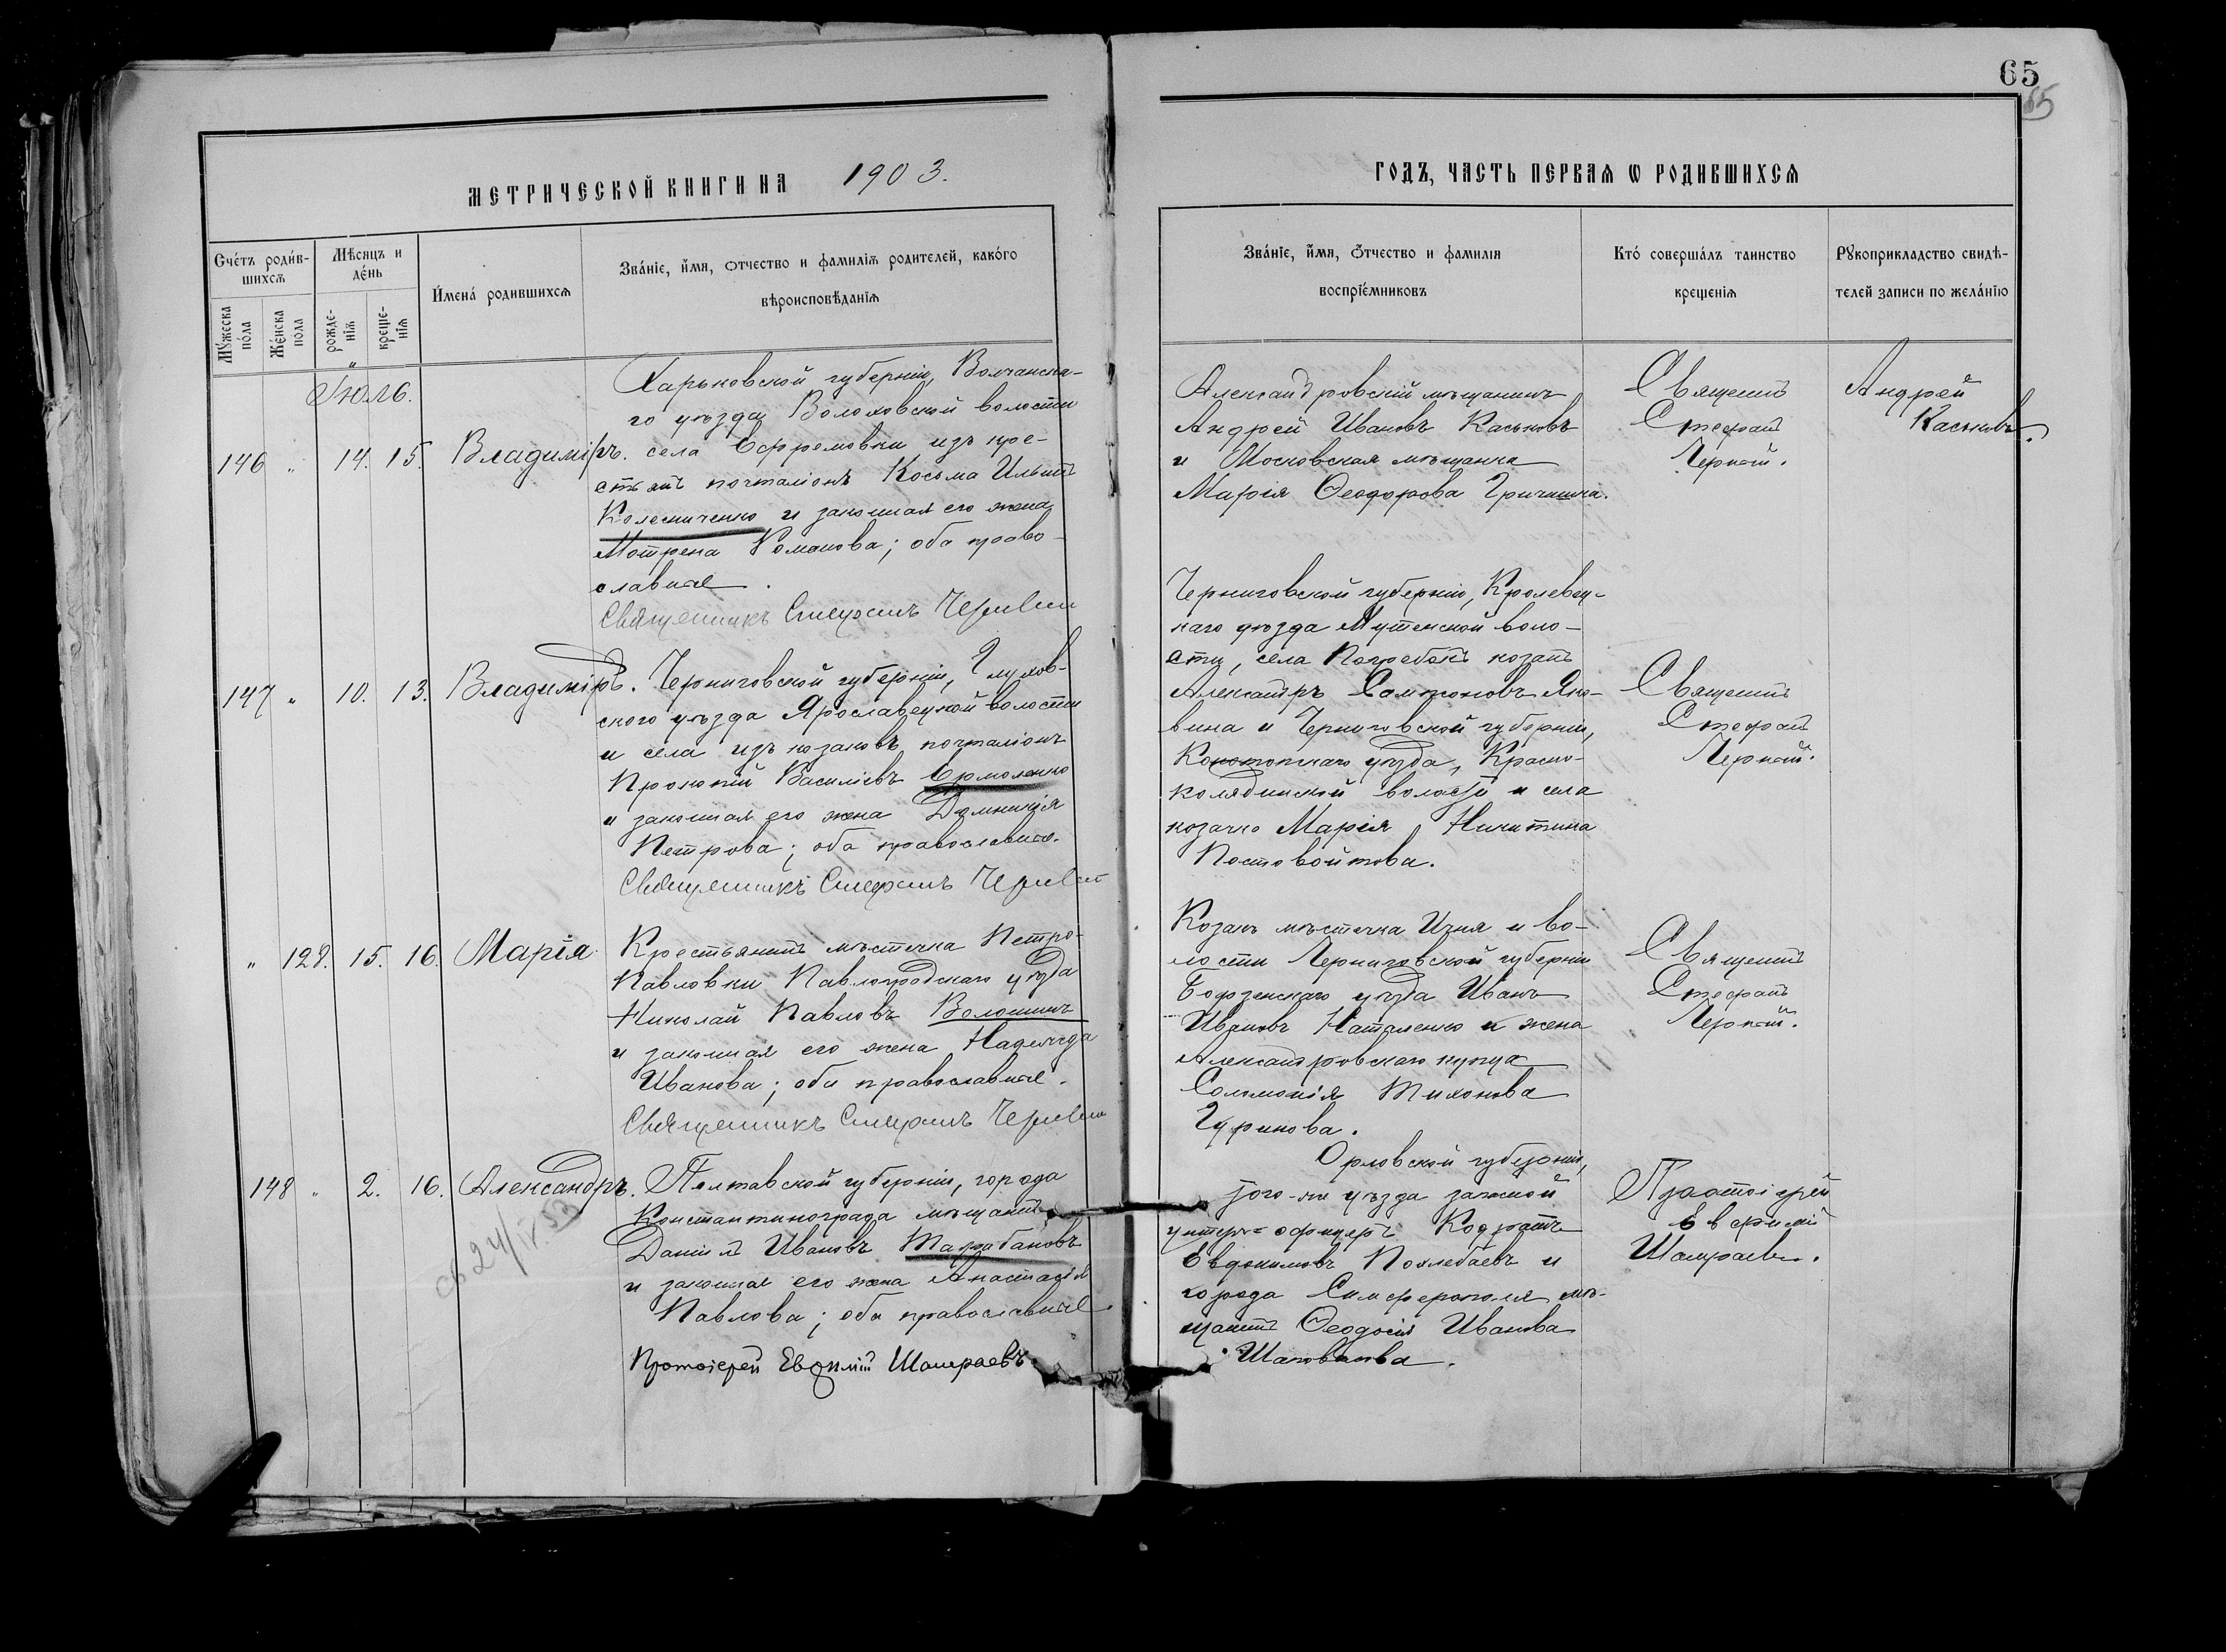 65
65
МЕТРИЧЕСКОЙ КНИГИ НА 1903.
ГОДЪ, ЧАСТЬ ПЕРВАЯ Ѡ РОДИВШИХСЯ
Счетъ родив-
шихся
Мѣсяцъ и
день
Мужеска
пола
Женска
пола
рожде-
нія
креще-
нія
Имена родившихся
Званіе, имя, отчество и фамилія родителей, какого
вѣроисповѣданія
Званіе, имя, отчество и фамилія
воспріемниковъ
Кто совершалъ таинство
крещенія
Рукоприкладство свидѣ-
телей записи по желанію
Іюль.
146 " 14. 15. Владиміръ.
Харьковской губерніи, Волчанска-
го уѣзда, Волоховской волости
села Ефремовки изъ кре-
стьянъ почталіонъ Косьма Ильинъ
Колесниченко и законная его жена
Мотрена Романова; оба право-
славные.
Священникъ Стефанъ
Александровскій мѣщанинъ
Андрей Ивановъ Каськовъ
и Московская мѣщанка
Марія Ѳеодорова
Священ.
Стефанъ
Андрей
Каськовъ.
147 " 10. 13. Владиміръ.
Черниговской губерніи, Глухов-
ского уѣзда Ярославецкой волости
и села изъ козаковъ почталіонъ
Прокопій Василіевъ Ермоленко
и законная его жена Домникія
Петрова; оба православные.
Священникъ Стефанъ
Черниговской губерніи, Кролевец-
каго уѣзда Мутенской воло-
сти, села Погребокъ козакъ
Александръ Яко-
вина и Черниговской губерніи,
Конотопскаго уѣзда, Красно-
колядинской волости и села
козачка Марія Никитина
Постовойтова.
Священ.
Стефанъ
" 128. 15. 16. Марія.
Крестьянинъ мѣстечка Петро-
Павловки Павлоградскаго уѣзда
Николай Павловъ Волошинъ
и законная его жена Надежда
Иванова; оба православные.
Священникъ Стефанъ
Козакъ мѣстечка Ичня и во-
лости Черниговской губерніи
Борзенскаго уѣзда Иванъ
Ивановъ Наталенко и жена
Александровскаго купца
Соломонія Тихонова
Гуринова.
Священ.
Стефанъ
148 " 2. 16. Александръ.
св 24/IV 53
Полтавской губерніи, города
Константинограда мѣщанинъ
Даніилъ Ивановъ Тарабановъ
и законная его жена Анастасія
Павлова; оба православные.
Протоіерей Евѳимій Шамраевъ
Орловской губерніи,
того-же уѣзда запасной
унтеръ-офицеръ Кодратъ
Евдокимовъ Похлебаевъ и
города Симферополя мѣ-
щанка Ѳеодосія Иванова
Протоіерей
Евѳимій
Шамраевъ.